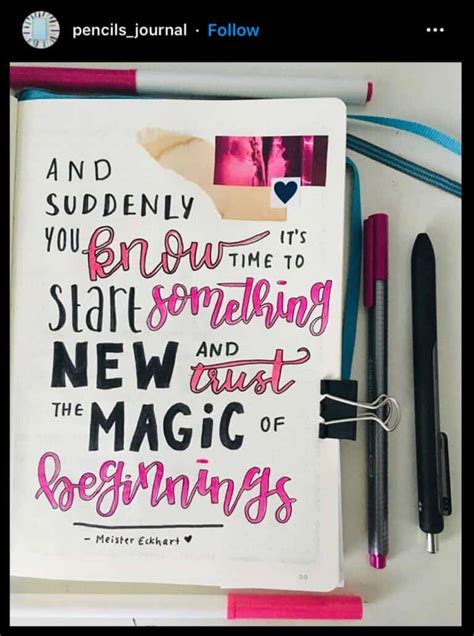 pencils_journal · Follow
AND
SUDDENLY
YOU know IT'S
TIME TO
Start something
NEW AND trust
THE MAGiC OF
beginnings
- Meister Eckhart ♥